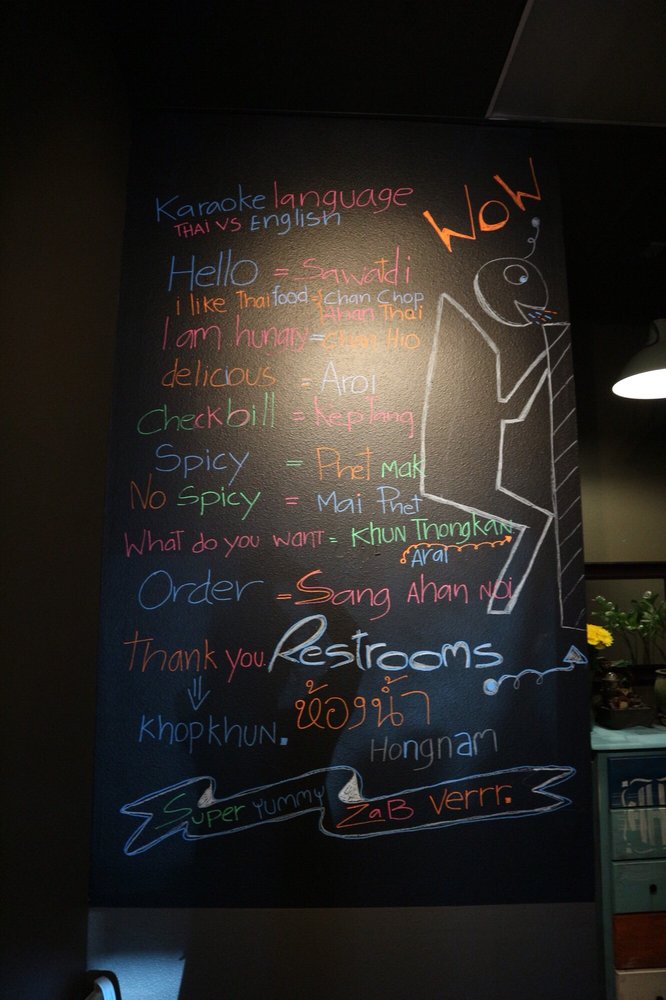 Karaoke language
THAI VS English
WOW
Hello = Sawatdi
i like Thai food = Chan Chop
Ahan Thai
I am hungry = Chan Hio
delicious = Aroi
Checkbill = KepTang
Spicy = Phet mak
No Spicy = Mai Phet
What do you want = Khun Thongkan
Arai
Order = Sang Ahan Noi
Thank you.
Restrooms
ห้องน้ำ
Khopkhun.
Hongnam
Super Yummy ZaB verrr.